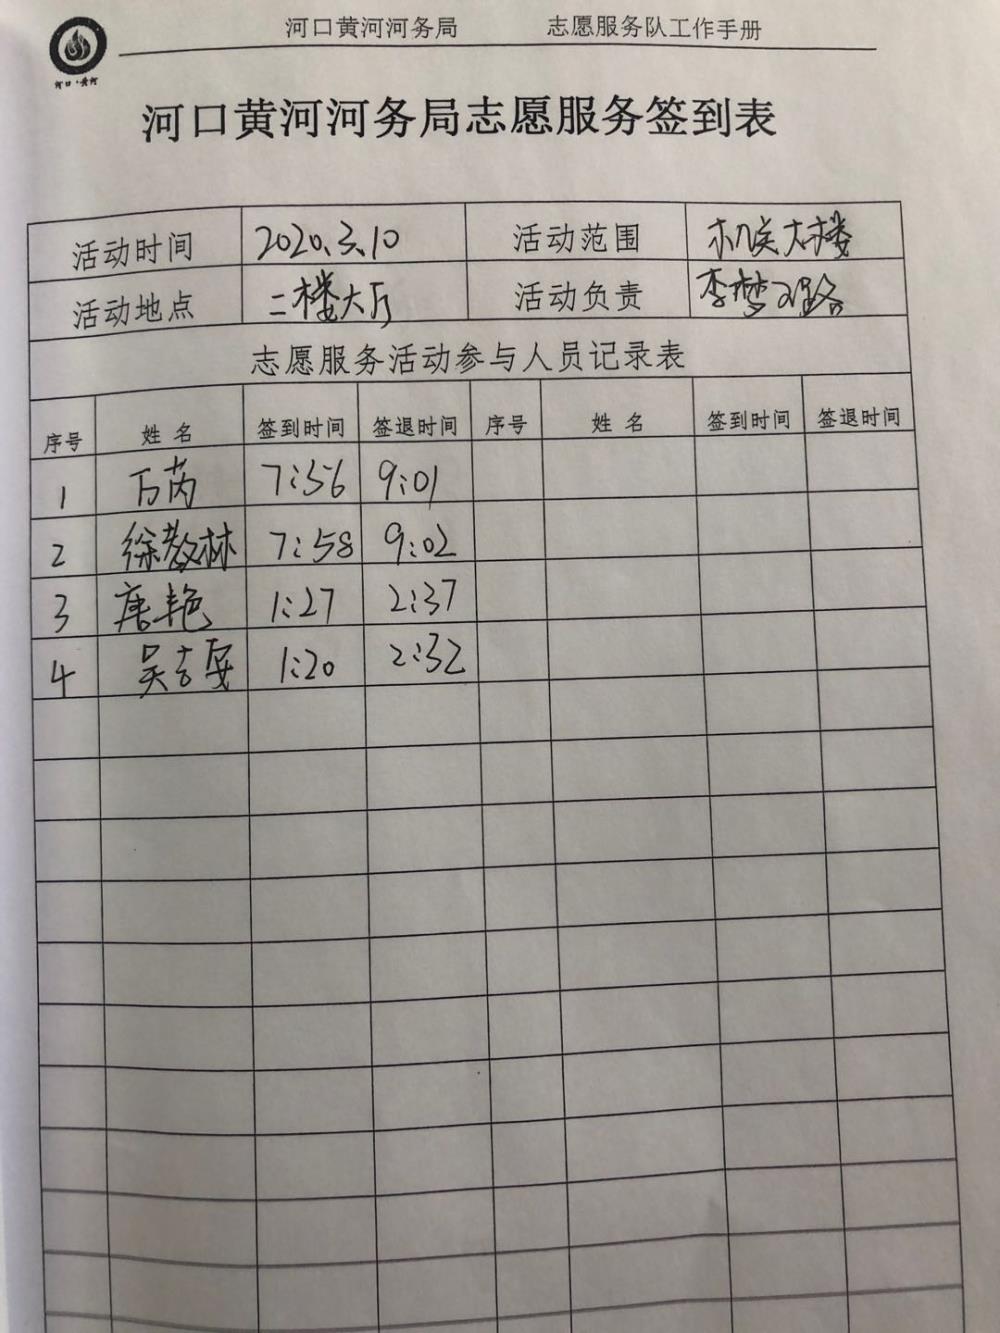 河口黄河河务局 志愿服务队工作手册
河口·黄河
河口黄河河务局志愿服务签到表
活动时间 2020.3.10 活动范围 机关大楼
活动地点 二楼大厅 活动负责 李梦璐
志愿服务活动参与人员记录表
序号 姓名 签到时间 签退时间 序号 姓名 签到时间 签退时间
1 万芮 7:56 9:01
2 徐教林 7:58 9:02
3 唐艳 1:27 2:37
4 吴吉安 1:20 2:32